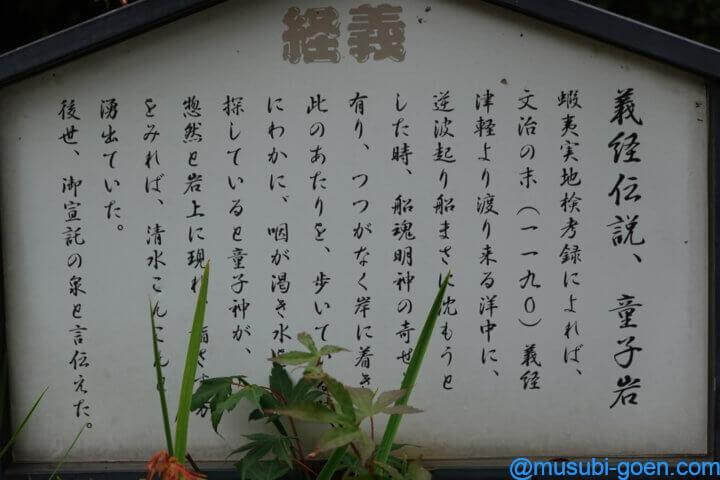 義経
義経伝説、童子岩
蝦夷実地検考録によれば、
文治の末（一一九〇）義経
津軽より渡り来る洋中に、
逆波起り船まさに沈もうと
した時、船魂明神の奇せ
有り、つつがなく岸に着き
此のあたりを、歩いて
にわかに、咽が渇き水
探していると童子神が、
惣然と岩上に現れ、指さす方
をみれば、清水こんこんと
湧出ていた。
後世、御宣託の泉と言伝えた。
@musubi-goen.com